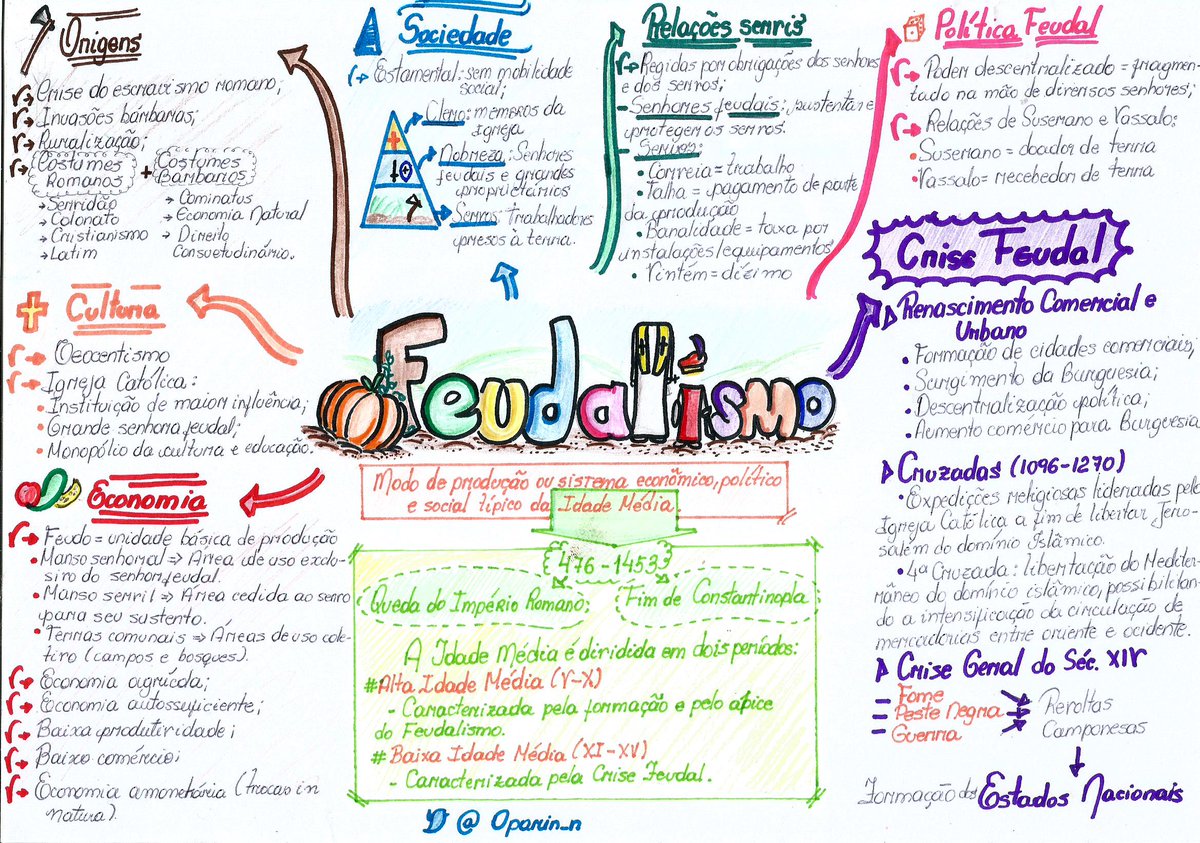 Origens
Crise do escravismo romano;
Invasões bárbaras;
Ruralização;
Costumes Romanos + Costumes Bárbarios
→ Servidão
→ Colonato
→ Cristianismo
→ Latim
→ Cominatus
→ Economia Natural
→ Direito
Consuetudinário.
Sociedade
Estamental: sem mobilidade
social;
Clero: membros da
Igreja
Nobreza: Senhores
feudais e grandes
proprietários
Servos: Trabalhadores
presos à terra.
Relações servis
Regidas por obrigações dos senhores
e dos servos;
- Senhores feudais: sustentar e
protegem os servos.
- Servos:
• Corveia = trabalho
• Talha = pagamento de parte
da produção
• Banalidade = taxa por
instalações/equipamentos
• Vintém = dízimo
Política Feudal
Poder descentralizado = fragmen-
tado na mão de diversos senhores;
Relações de Suserano e Vassalo:
• Suserano = doador de terra
• Vassalo = recebedor de terra
Cultura
Teocentismo
Igreja Católica:
• Instituição de maior influência;
• Grande senhora feudal;
• Monopólio da cultura e educação.
Feudalismo
Modo de produção ou sistema econômico, político
e social típico da Idade Média.
476 - 1453
Queda do Império Romano;
Fim de Constantinopla
A Idade Média é dividida em dois períodos:
#Alta Idade Média (V-X)
- Caracterizada pela formação e pelo ápice
do Feudalismo.
# Baixa Idade Média (XI-XV)
- Caracterizada pela Crise Feudal.
@ Oparin_n
Economia
Feudo = unidade básica de produção
• Manso senhorial => Área de uso exclu-
sivo do senhor feudal.
• Manso servil => Área cedida ao servo
para seu sustento.
• Terras comunais => Áreas de uso cole-
tivo (campos e bosques).
Economia agrícola;
Economia autossuficiente;
Baixa produtividade;
Baixo comércio;
Economia amonetária (trocas in
natura).
Crise Feudal
Renascimento Comercial e
Urbano
• Formação de cidades comerciais;
• Surgimento da Burguesia;
• Descentralização política;
• Aumento comércio para Burguesia
Cruzadas (1096-1270)
• Expedições religiosas lideradas pela
Igreja Católica a fim de libertar Jeru-
salém do domínio Islâmico.
• 4ª Cruzada: libertação do Mediter-
râneo do domínio islâmico, possibilitan-
do a intensificação da circulação de
mercadorias entre oriente e ocidente.
Crise Geral do Séc. XIV
- Fome
- Peste Negra
- Guerra
Revoltas
Camponesas
Formação dos Estados Nacionais